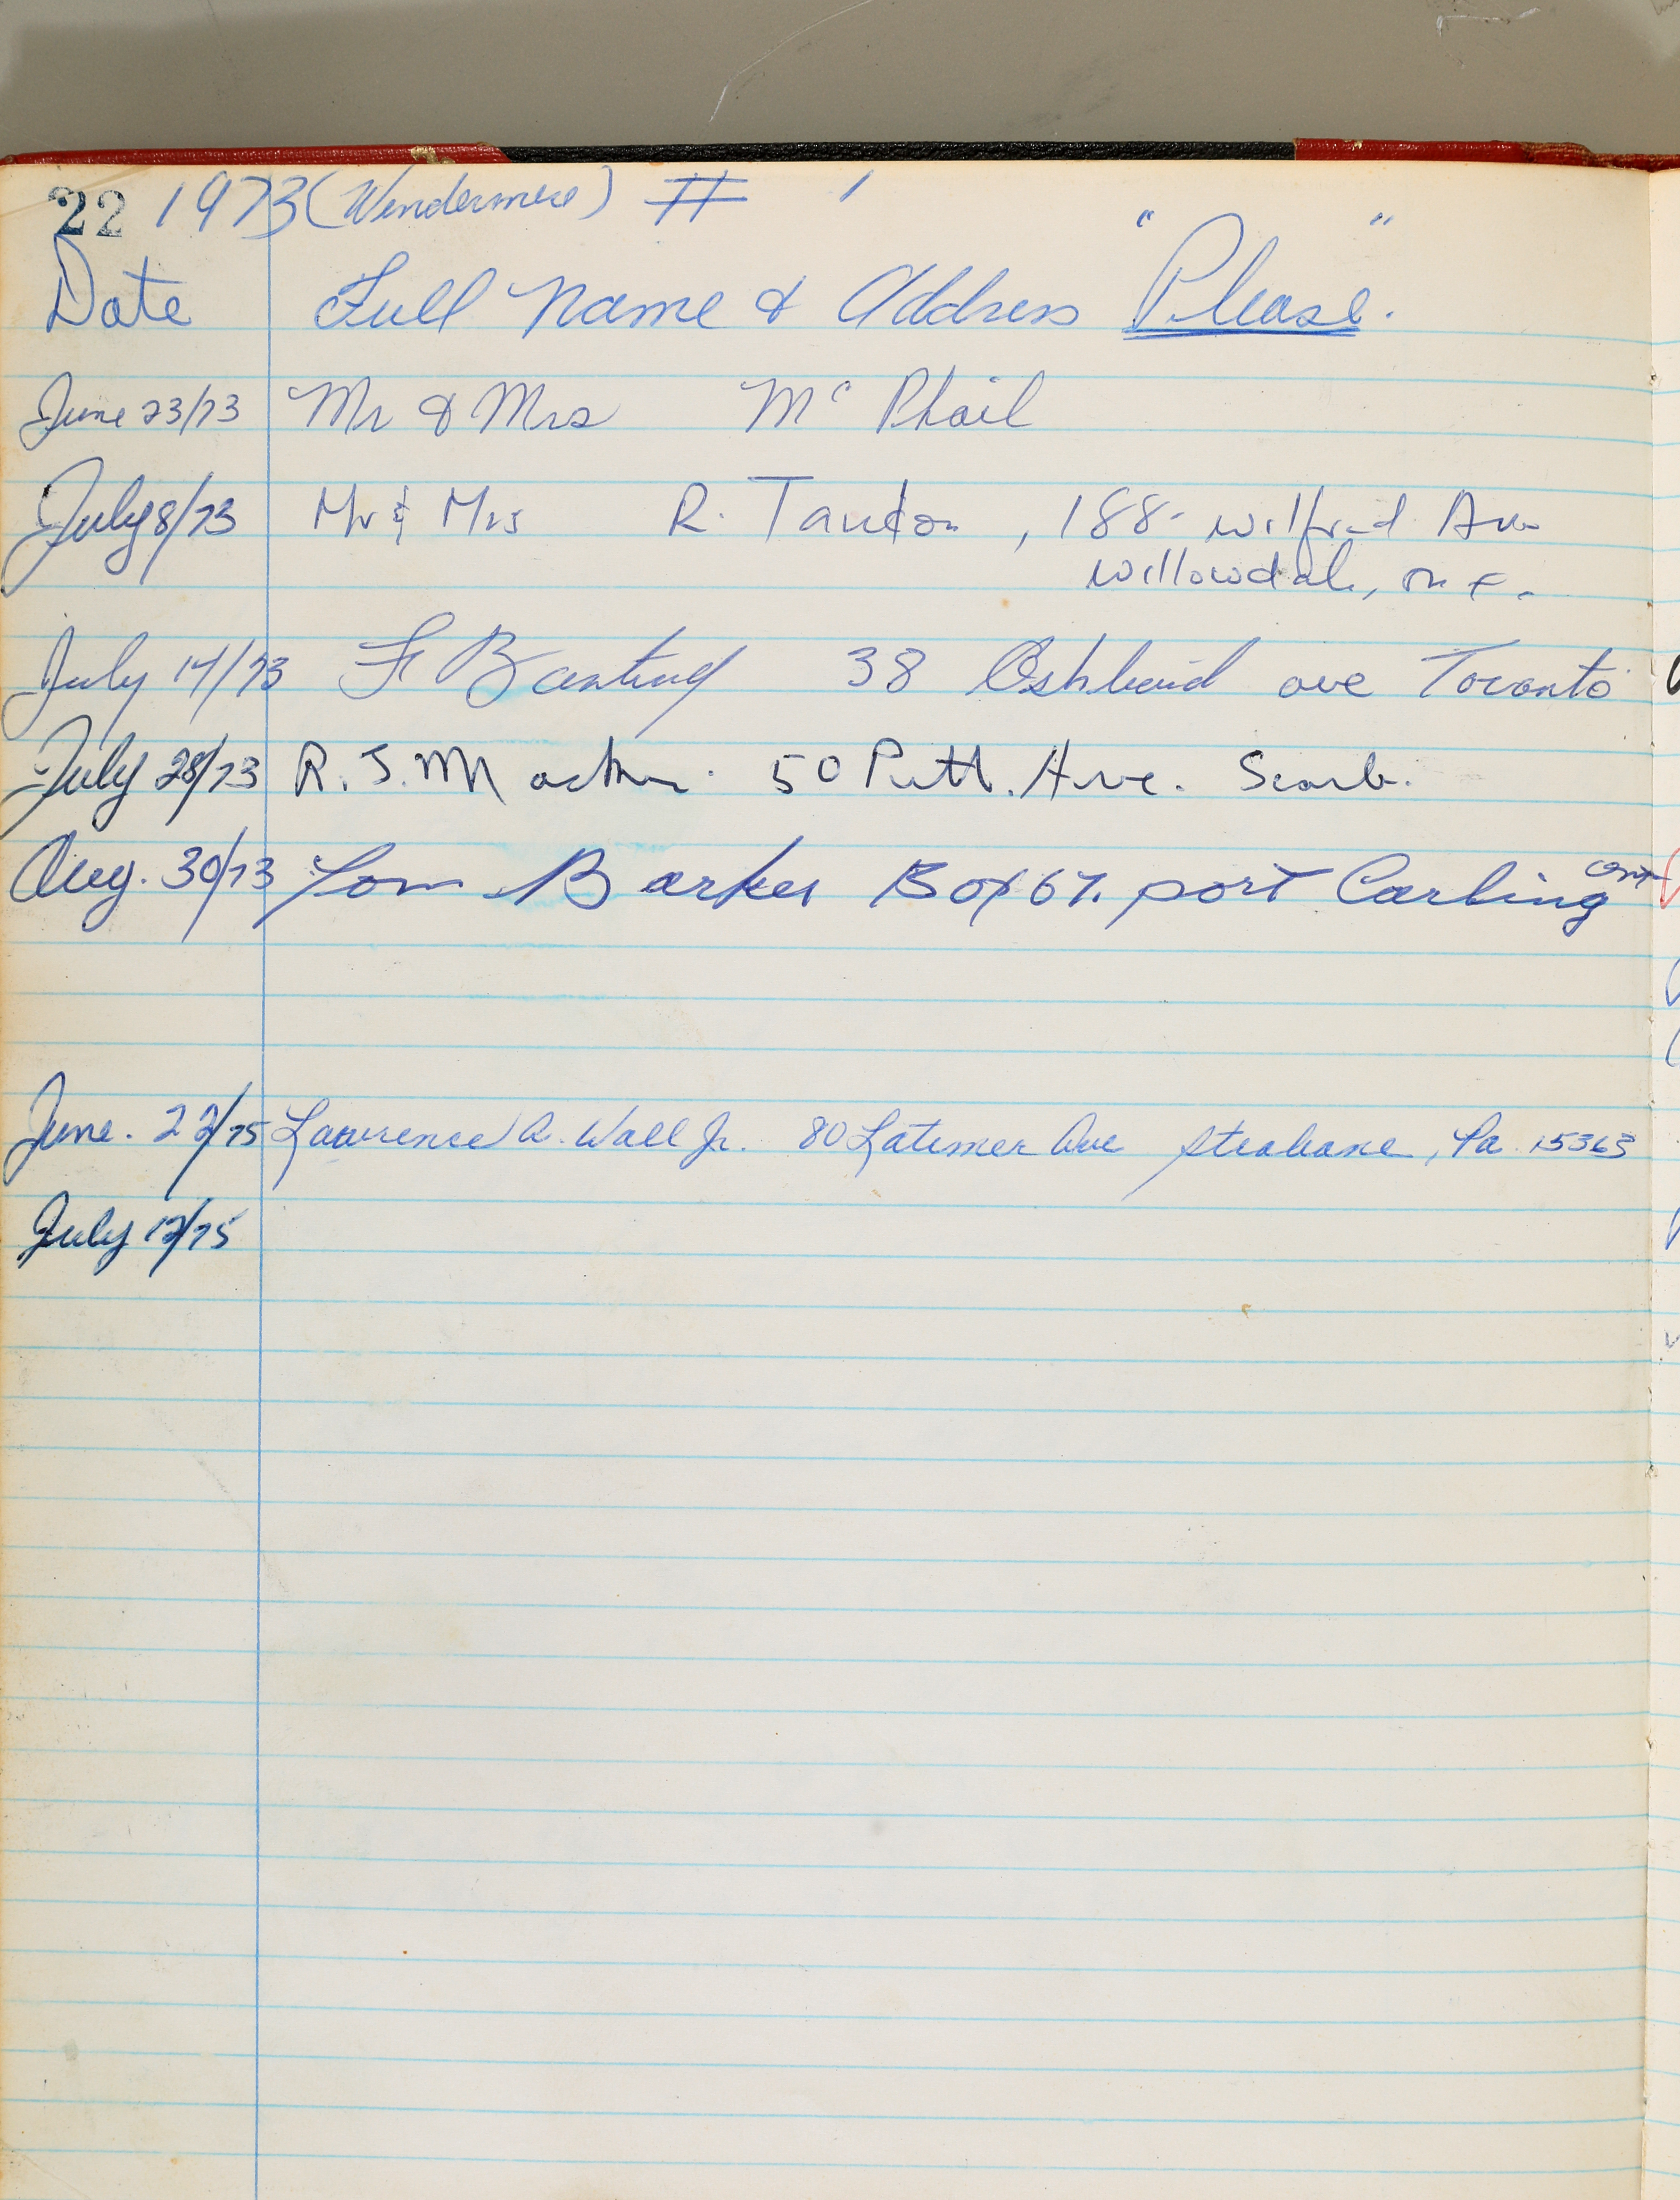 22 1973 (Windermere) # 1
Date Full Name & Address "Please".
June 23/73 Mr & Mrs Mc Phail
July 8/73 Mr & Mrs R. Tandon, 188- Wilfred Ave
Willowdale, Ont.
July 14/73 F Banting 38 ave Toronto
July 28/73 R. J. 50 Ave. Scarb.
Aug. 30/73 Tom Barker Box 67. port Carling ont
June. 22/75 Lawrence A. Wall Jr. 80 Latimer Ave Strabane, Pa 15363
July 12/75